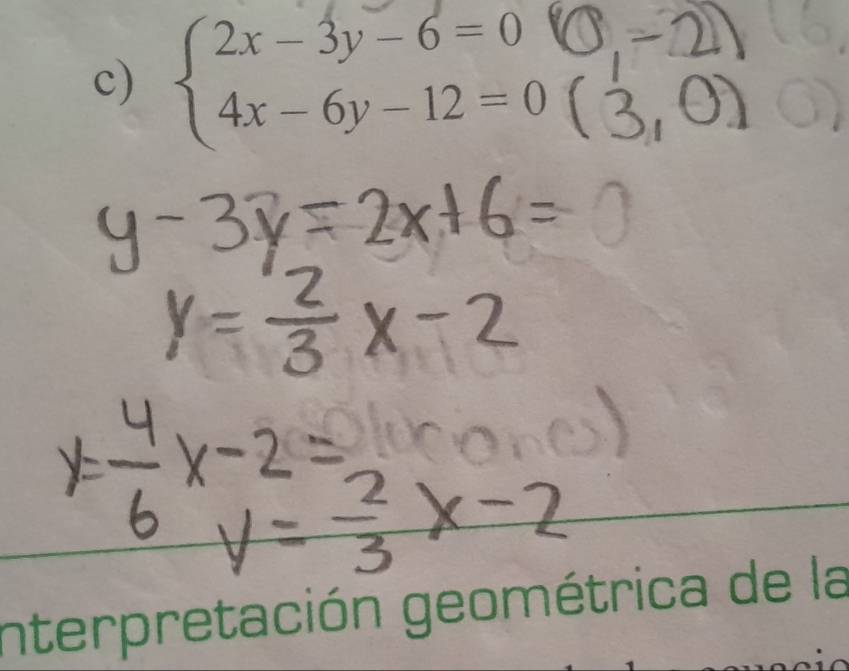 c) { 2x − 3y − 6 = 0 (0, −2)
4x − 6y − 12 = 0 (3, 0)
y − 3y = 2x + 6 = 0
y = 2/3 x − 2
y = 4/6 x − 2 =
y = 2/3 x − 2
nterpretación geométrica de la